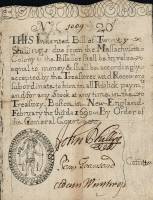 No (1009) 20s
THIS Indented Bill of Twenty
Shillings due from the Massachusets
Colony to the Possessor shall be in value
equal to money & shall be accordingly
accepted by the Treasurer and Receivers
subordinate to him in all Publick paym
and for any Stock at any time in the
Treasury. Boston in New-England
February the third 1690 By Order of
the General Court
Penn Townsend
Adam Winthrop